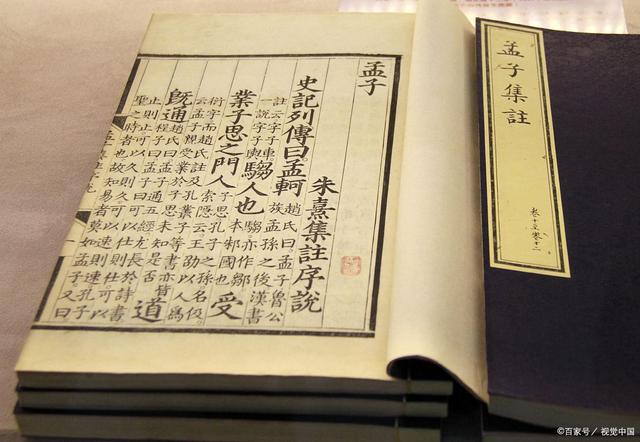 孟子
朱熹集註序說
史記列傳曰孟軻趙氏曰孟子魯公族孟孫之後漢書
註云字子車一說字子輿騶人也騶亦作鄒本邾國也受
業子思之門人子思孔子之孫名伋索隱云王劭以人爲
衍字而趙氏註及孔叢子等書亦皆云孟子親受業於子思未知是否道
既通趙氏曰孟子通五經尤長於詩書程子曰孟子曰可以仕則仕可以
止則止可以久則久可以速則速孔子聖之時者也故知易者莫如孟子又曰
孟子集註
©百家号／视觉中国